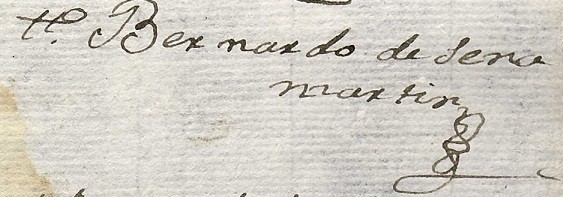 tt.º Bernardo de Sena
martin